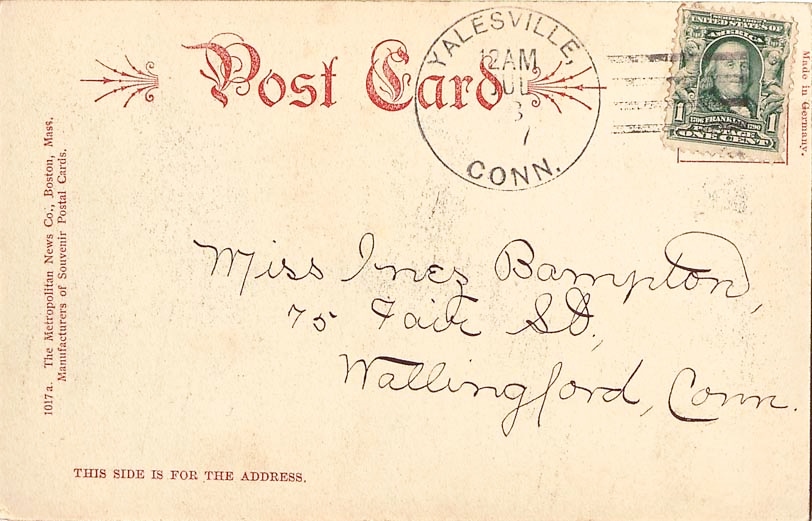 Post Card
YALESVILLE,
12AM
JUL
3
7
CONN.
UNITED STATES OF
AMERICA
1706 FRANKLIN 1790
1 POSTAGE 1
ONE CENT
Made in Germany.
1017a. The Metropolitan News Co., Boston, Mass.
Manufacturers of Souvenir Postal Cards.
Miss Inez Bampton,
75 Fair St,
Wallingford, Conn.
THIS SIDE IS FOR THE ADDRESS.